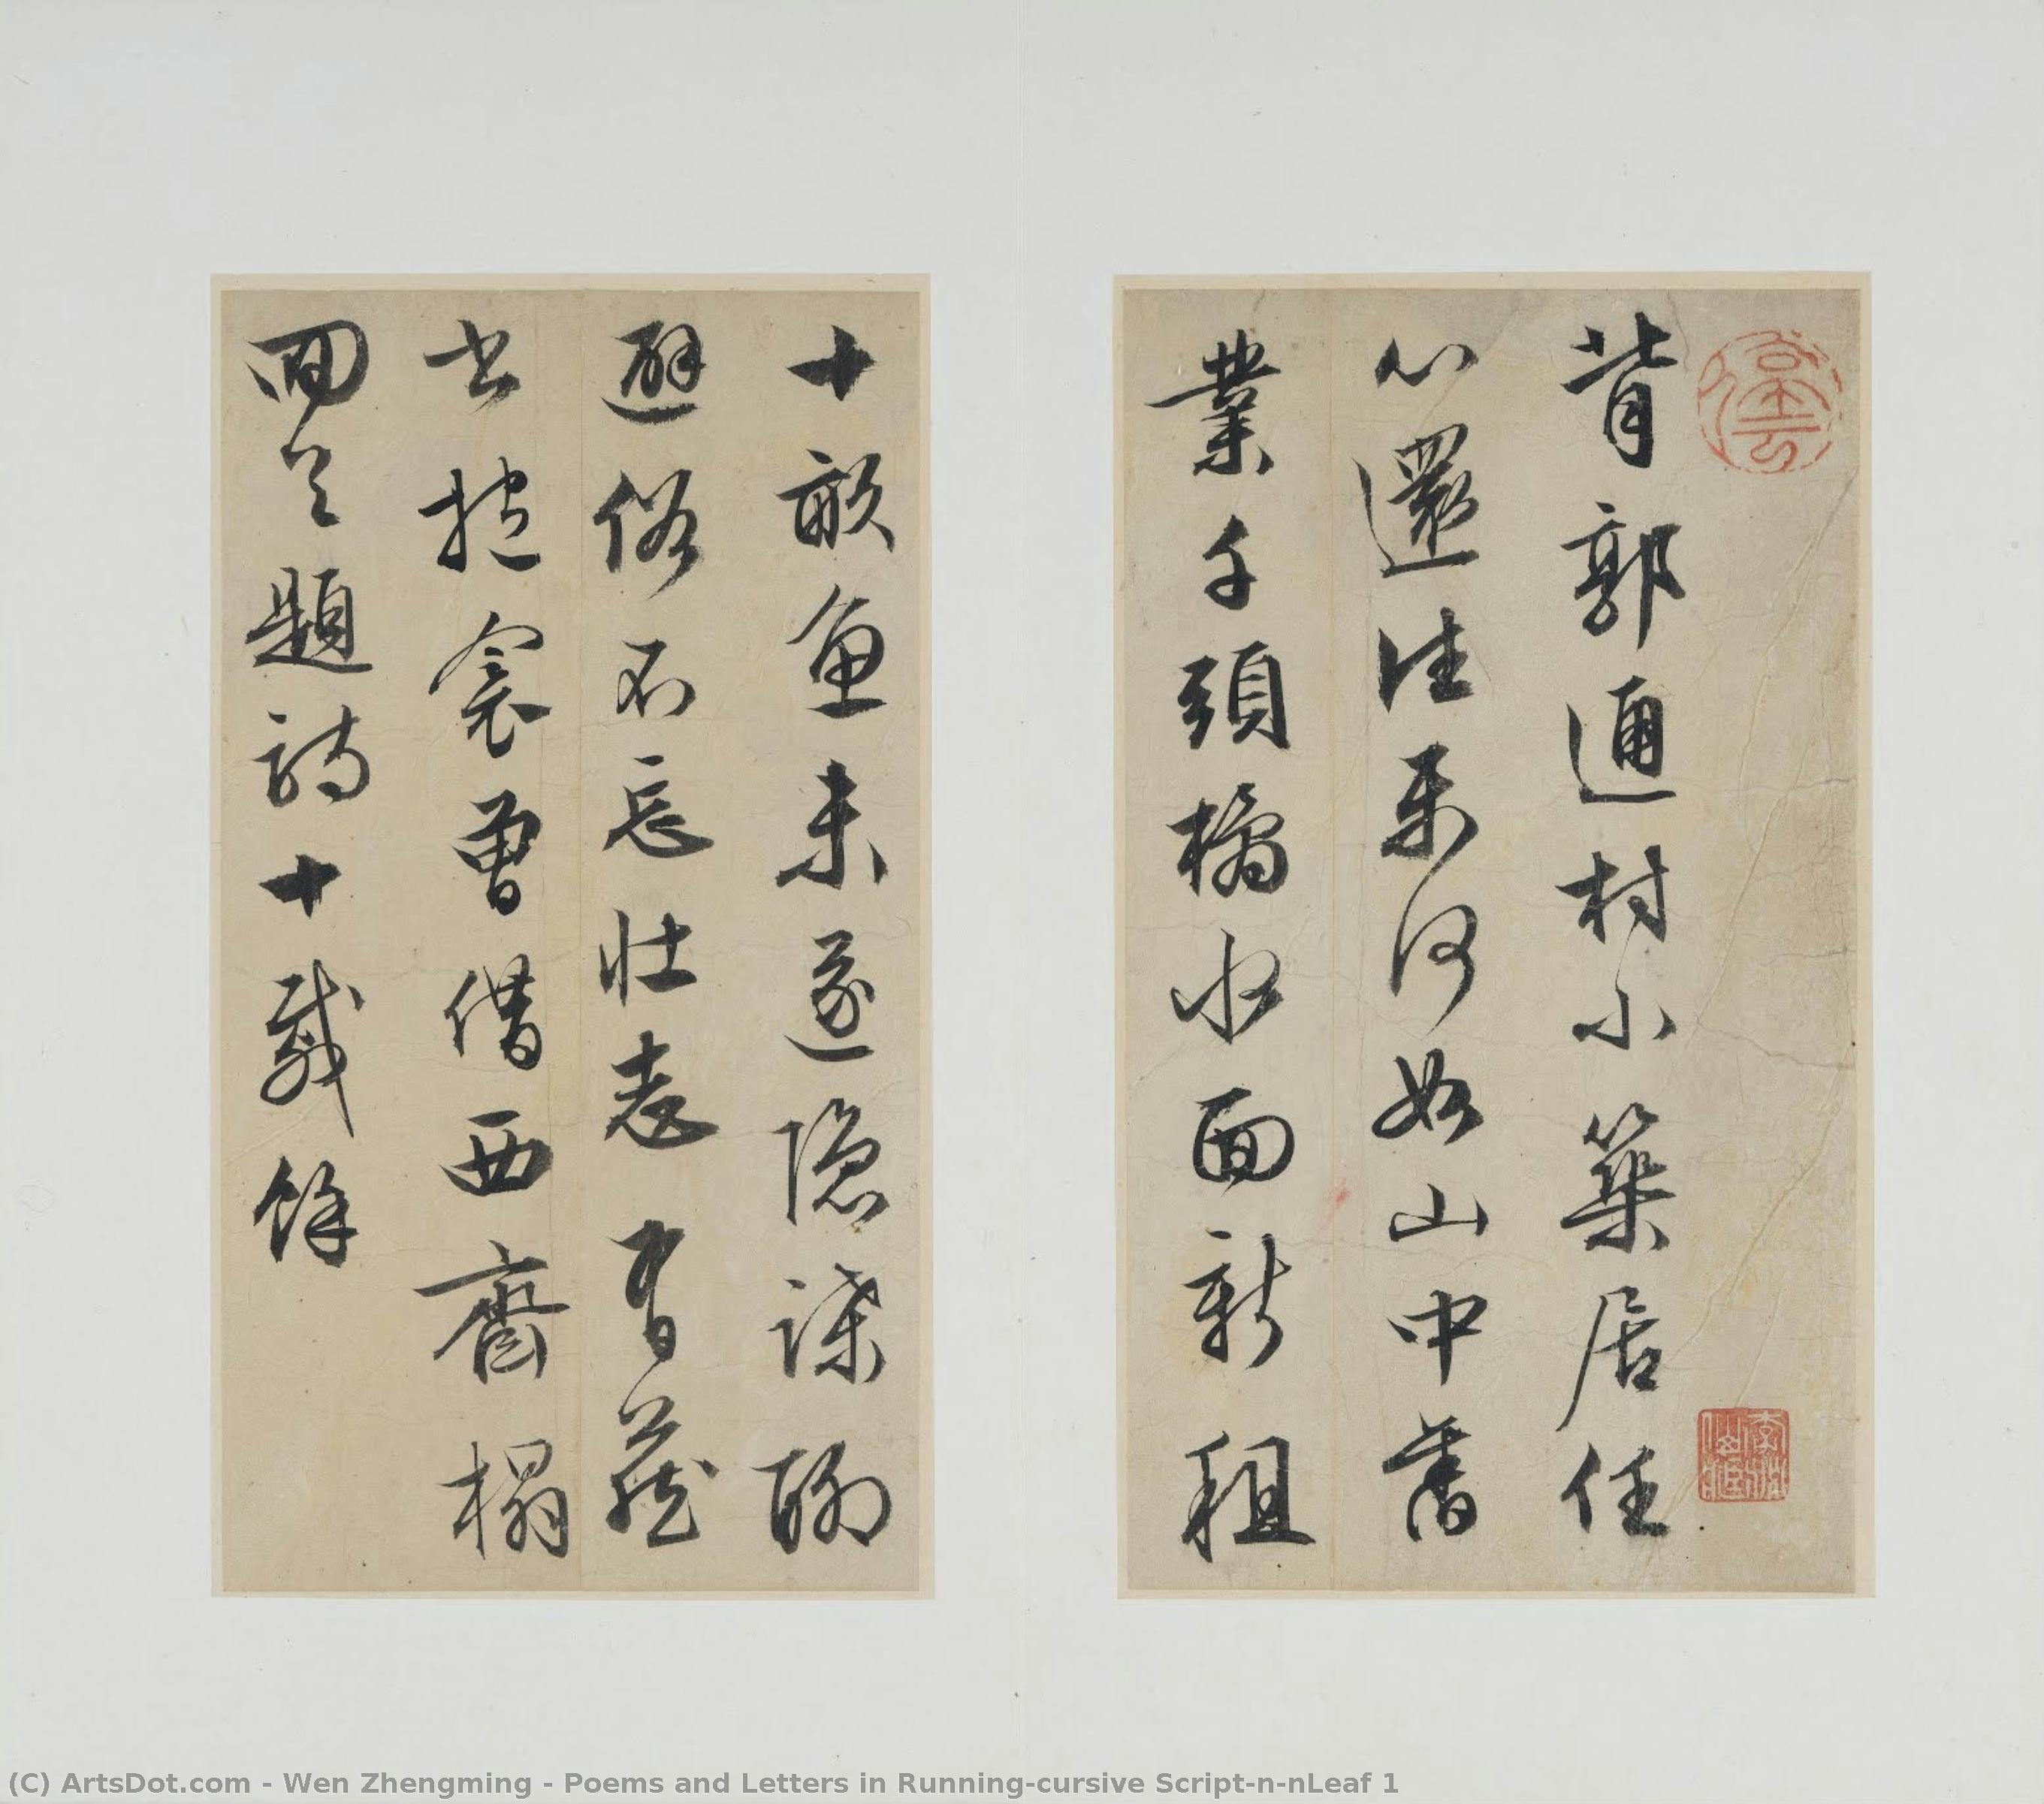 背郭通村小築居任
心還往樂何如山中舊
業千頭橘水面新租
十畝魚未遂隱謀聊
避俗不忘壯志有藏
書抱衾曾借西齋榻
回首題詩十載餘
(C) ArtsDot.com - Wen Zhengming - Poems and Letters in Running-cursive Script-n-nLeaf 1